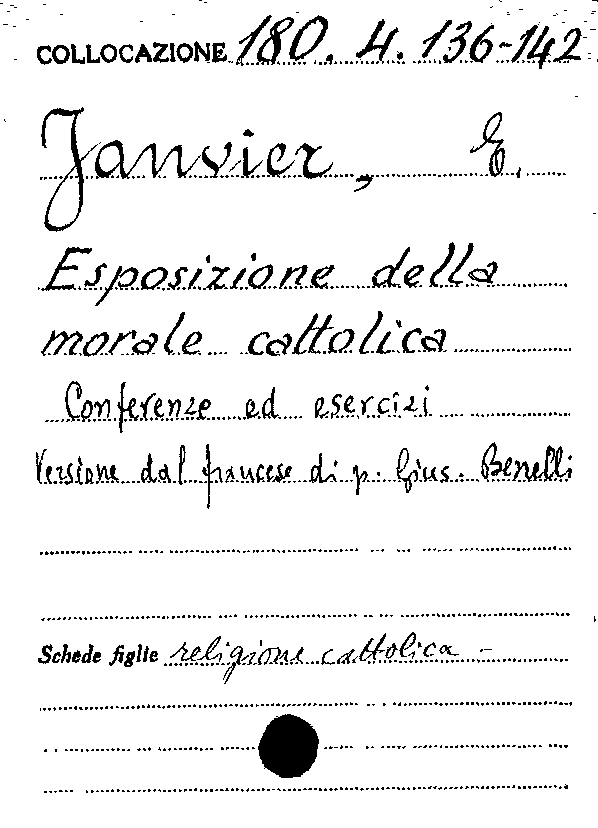 COLLOCAZIONE 180. 4. 136-142
Janvier, E.
Esposizione della
morale cattolica
Conferenze ed esercizi
Versione dal francese di p. Gius. Benelli
Schede figlie religione cattolica -